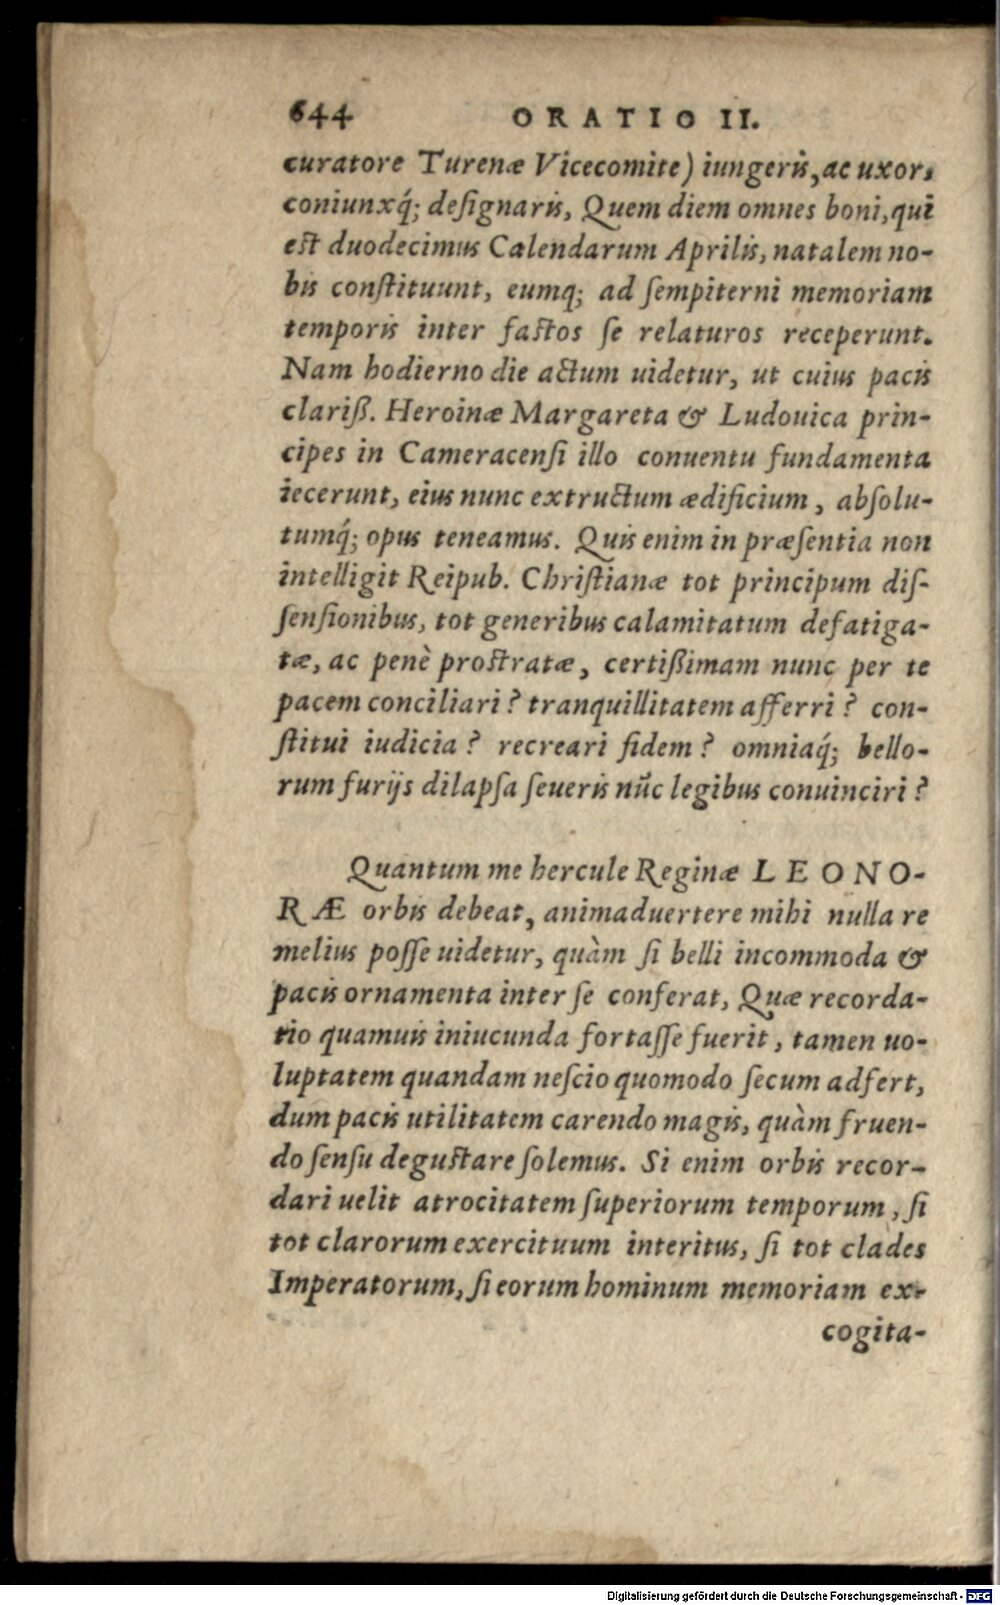 644 ORATIO II.
curatore Turenæ Vicecomite) iungeris, ac uxor,
coniunxq́; deſignaris, Quem diem omnes boni, qui
eſt duodecimus Calendarum Aprilis, natalem no-
bis conſtituunt, eumq; ad ſempiterni memoriam
temporis inter faſtos ſe relaturos receperunt.
Nam hodierno die actum uidetur, ut cuius pacis
clariß. Heroinæ Margareta & Ludouica prin-
cipes in Cameracenſi illo conuentu fundamenta
iecerunt, eius nunc extructum ædificium, abſolu-
tumq́; opus teneamus. Quis enim in præſentia non
intelligit Reipub. Chriſtianæ tot principum diſ-
ſenſionibus, tot generibus calamitatum defatiga-
tæ, ac penè proſtratæ, certißimam nunc per te
pacem conciliari? tranquillitatem afferri? con-
ſtitui iudicia? recreari fidem? omniaq́; bello-
rum furijs dilapſa ſeueris nūc legibus conuinciri?
Quantum me hercule Reginæ LEONO-
RÆ orbis debeat, animaduertere mihi nulla re
melius poſſe uidetur, quàm ſi belli incommoda &
pacis ornamenta inter ſe conferat, Quæ recorda-
tio quamuis iniucunda fortaſſe fuerit, tamen uo-
luptatem quandam neſcio quomodo ſecum adfert,
dum pacis utilitatem carendo magis, quàm fruen-
do ſenſu deguſtare ſolemus. Si enim orbis recor-
dari uelit atrocitatem ſuperiorum temporum, ſi
tot clarorum exercituum interitus, ſi tot clades
Imperatorum, ſi eorum hominum memoriam ex-
cogita-
Digitalisierung gefördert durch die Deutsche Forschungsgemeinschaft - DFG